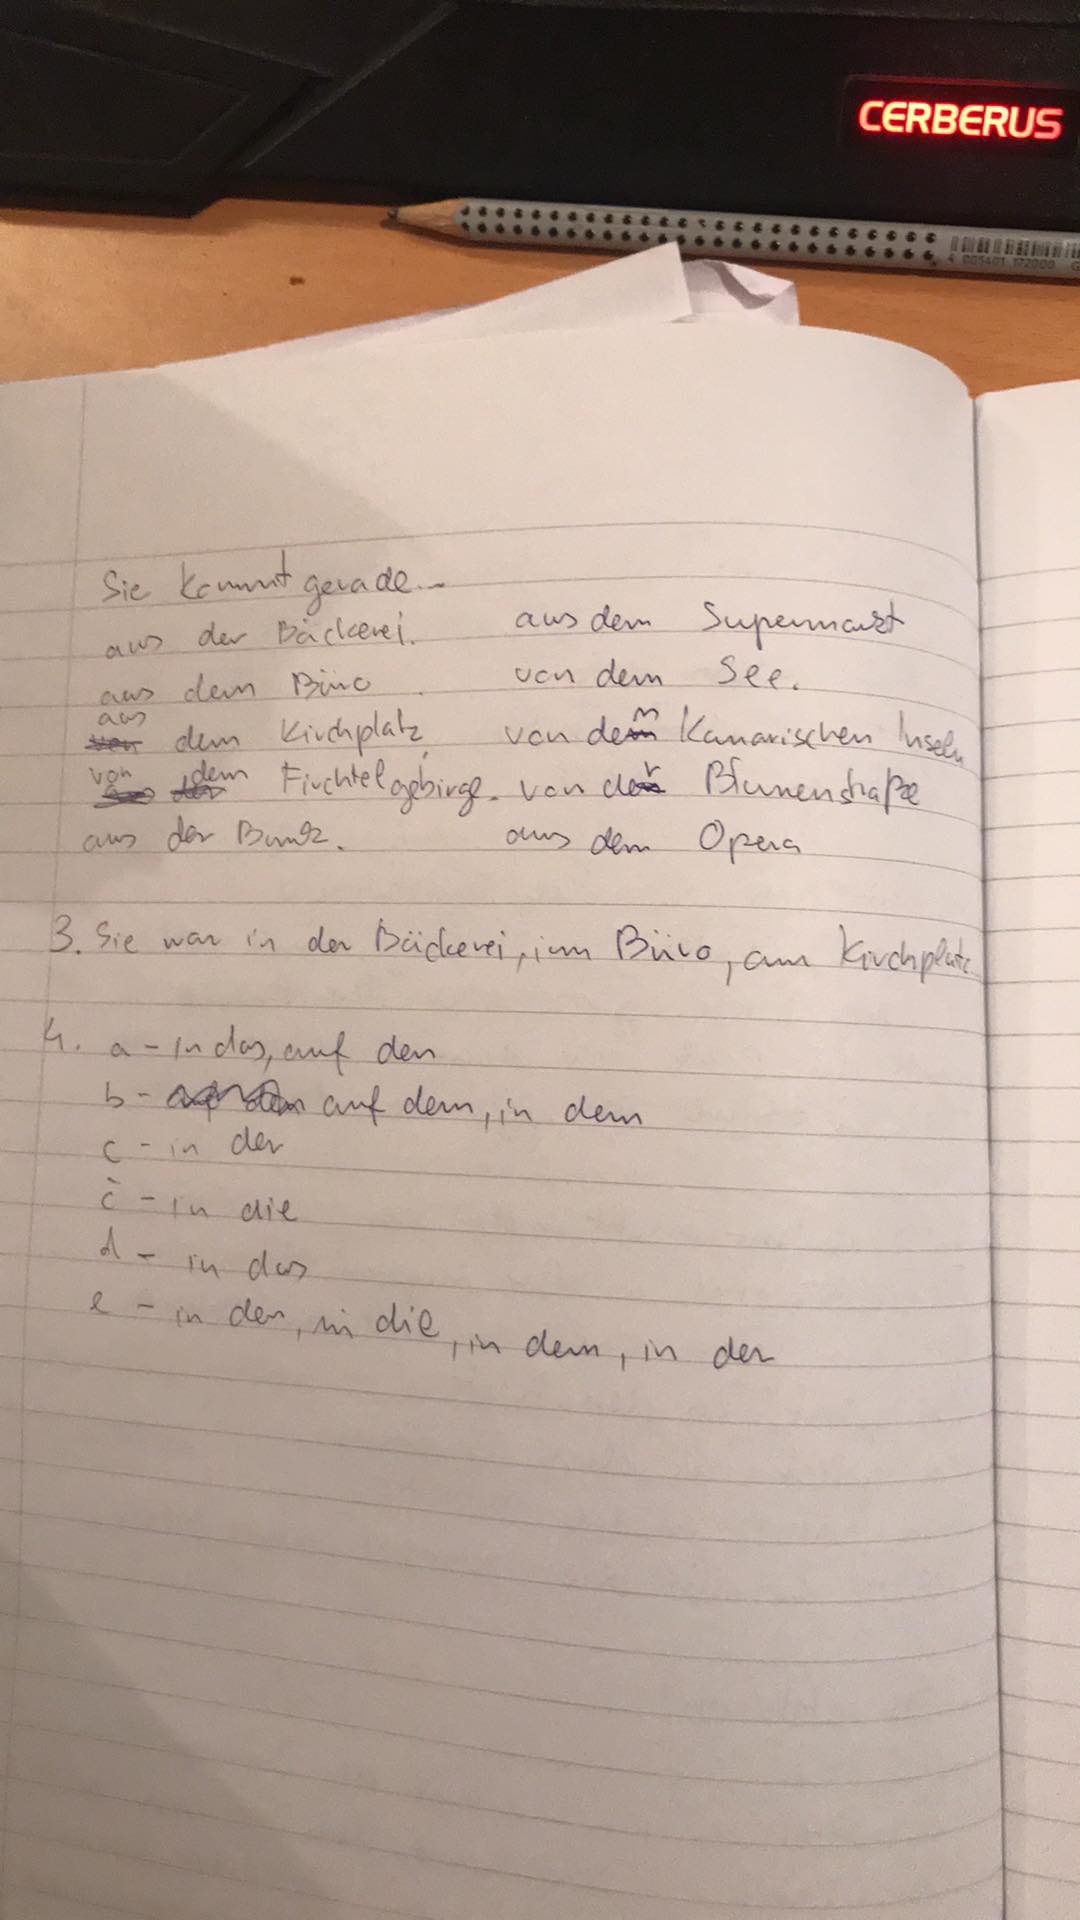 CERBERUS
4 005401 172000 G
Sie kommt gerade...
aus der Bäckerei.
aus dem Büro.
aus
von dem Kirchplatz,
von dem
aus der Fichtelgebirge.
aus der Bank.
aus dem Supermarkt
von dem See.
n
von dem Kanarischen Inseln
r
von den Blumenstraße
aus dem Opera
3. Sie war in der Bäckerei, im Büro, am Kirchplatz
4. a - in das, auf den
b - auf dem, in dem
c - in der
č - in die
d - in das
e - in der, in die, in dem, in der